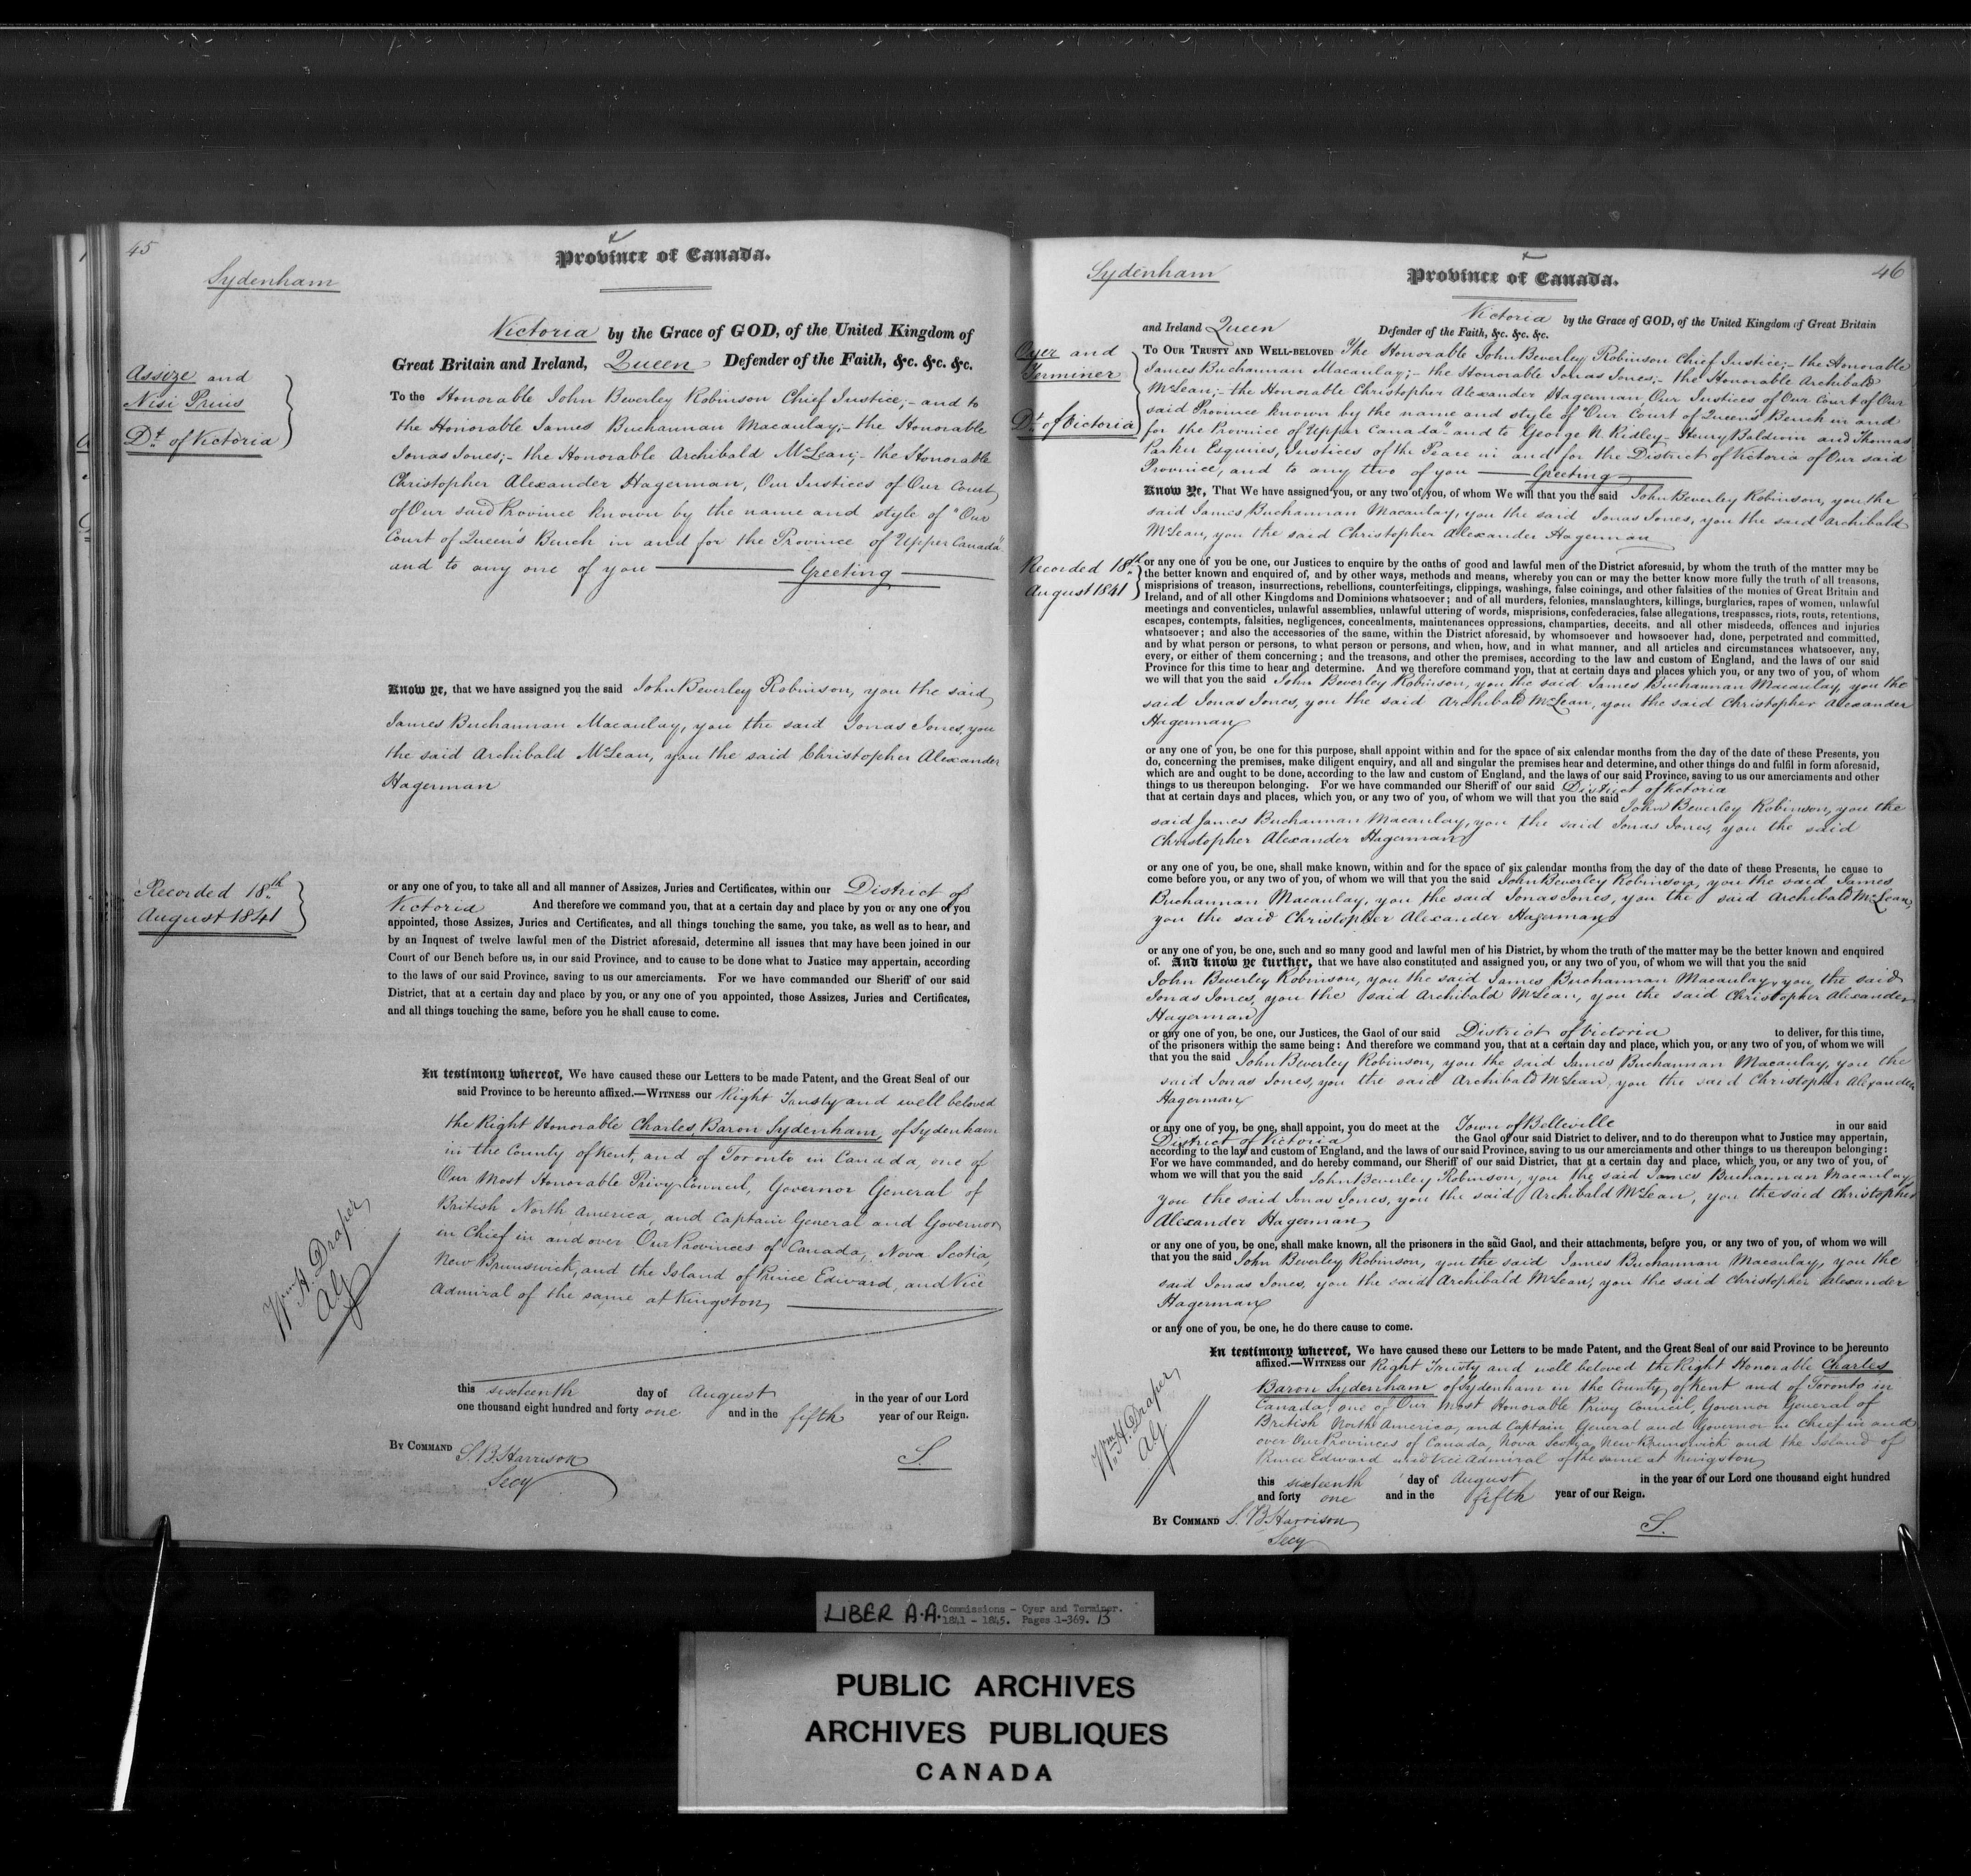 45
Province of Canada.
Sydenham
Victoria by the Grace of GOD, of the United Kingdom of
Great Britain and Ireland, Queen Defender of the Faith, &c. &c. &c.
Assize and
Nisi Prius
Dt. of Victoria
To the Honorable John Beverley Robinson Chief Justice;- and to
the Honorable James Buchannan Macaulay;- the Honorable
Jonas Jones;- the Honorable Archibald McLean;- the Honorable
Christopher Alexander Hagerman, Our Justices of Our Court
of Our said Province known by the name and style of "Our
Court of Queen's Bench in and for the Province of Upper Canada"
and to any one of you Greeting
Know ye, that we have assigned you the said John Beverley Robinson, you the said
James Buchannan Macaulay, you the said Jonas Jones, you
the said Archibald McLean, you the said Christopher Alexander
Hagerman
Recorded 18th
August 1841
or any one of you, to take all and all manner of Assizes, Juries and Certificates, within our District of
Victoria And therefore we command you, that at a certain day and place by you or any one of you
appointed, those Assizes, Juries and Certificates, and all things touching the same, you take, as well as to hear, and
by an Inquest of twelve lawful men of the District aforesaid, determine all issues that may have been joined in our
Court of our Bench before us, in our said Province, and to cause to be done what to Justice may appertain, according
to the laws of our said Province, saving to us our amerciaments. For we have commanded our Sheriff of our said
District, that at a certain day and place by you, or any one of you appointed, those Assizes, Juries and Certificates,
and all things touching the same, before you he shall cause to come.
In testimony whereof, We have caused these our Letters to be made Patent, and the Great Seal of our
said Province to be hereunto affixed.—WITNESS our Right Trusty and well beloved
the Right Honorable Charles, Baron Sydenham, of Sydenham
in the County of Kent, and of Toronto in Canada, one of
Our Most Honorable Privy Council, Governor General of
British North America, and Captain General and Governor
in Chief in and over Our Provinces of Canada, Nova Scotia,
New Brunswick, and the Island of Prince Edward, and Vice
Admiral of the same at Kingston,
Wm. H. Draper
AG
this sixteenth day of August in the year of our Lord
one thousand eight hundred and forty one and in the fifth year of our Reign.
BY COMMAND S. B. Harrison S.
Secy
46
Province of Canada.
Sydenham
Victoria by the Grace of GOD, of the United Kingdom of Great Britain
and Ireland Queen Defender of the Faith, &c. &c. &c.
Oyer and
Terminer
Dt. of Victoria
TO OUR TRUSTY AND WELL-BELOVED The Honorable John Beverley Robinson Chief Justice;- the Honorable
James Buchannan Macaulay;- the Honorable Jonas Jones;- the Honorable Archibald
McLean;- the Honorable Christopher Alexander Hagerman, Our Justices of Our Court of Our
said Province known by the name and style of "Our Court of Queen's Bench in and
for the Province of Upper Canada" and to George N. Ridley- Henry Baldwin and Thomas
Parker Esquires, Justices of the Peace in and for the District of Victoria of Our said
Province, and to any two of you Greeting
Know Ye, That We have assigned you, or any two of you, of whom We will that you the said John Beverley Robinson, you the
said James Buchannan Macaulay, you the said Jonas Jones, you the said Archibald
McLean, you the said Christopher Alexander Hagerman
Recorded 18th
August 1841
or any one of you be one, our Justices to enquire by the oaths of good and lawful men of the District aforesaid, by whom the truth of the matter may be
the better known and enquired of, and by other ways, methods and means, whereby you can or may the better know more fully the truth of all treasons,
misprisions of treason, insurrections, rebellions, counterfeitings, clippings, washings, false coinings, and other falsities of the monies of Great Britain and
Ireland, and of all other Kingdoms and Dominions whatsoever; and of all murders, felonies, manslaughters, killings, burglaries, rapes of women, unlawful
meetings and conventicles, unlawful assemblies, unlawful uttering of words, misprisions, confederacies, false allegations, trespasses, riots, routs, retentions,
escapes, contempts, falsities, negligences, concealments, maintenances oppressions, champarties, deceits, and all other misdeeds, offences and injuries
whatsoever; and also the accessories of the same, within the District aforesaid, by whomsoever and howsoever had, done, perpetrated and committed,
and by what person or persons, to what person or persons, and when, how, and in what manner, and all articles and circumstances whatsoever, any,
every, or either of them concerning; and the treasons, and other the premises, according to the law and custom of England, and the laws of our said
Province for this time to hear and determine. And we therefore command you, that at certain days and places which you, or any two of you, of whom
we will that you the said John Beverley Robinson, you the said James Buchannan Macaulay, you the
said Jonas Jones, you the said Archibald McLean, you the said Christopher Alexander
Hagerman
or any one of you, be one for this purpose, shall appoint within and for the space of six calendar months from the day of the date of these Presents, you
do, concerning the premises, make diligent enquiry, and all and singular the premises hear and determine, and other things do and fulfil in form aforesaid,
which are and ought to be done, according to the law and custom of England, and the laws of our said Province, saving to us our amerciaments and other
things to us thereupon belonging. For we have commanded our Sheriff of our said District of Victoria
that at certain days and places, which you, or any two of you, of whom we will that you the said John Beverley Robinson, you the
said James Buchannan Macaulay, you the said Jonas Jones, you the said
Christopher Alexander Hagerman
or any one of you, be one, shall make known, within and for the space of six calendar months from the day of the date of these Presents, he cause to
come before you, or any two of you, of whom we will that you the said John Beverley Robinson, you the said James
Buchannan Macaulay, you the said Jonas Jones, you the said Archibald McLean,
you the said Christopher Alexander Hagerman
or any one of you, be one, such and so many good and lawful men of his District, by whom the truth of the matter may be the better known and enquired
of. And know ye further, that we have also constituted and assigned you, or any two of you, of whom we will that you the said
John Beverley Robinson, you the said James Buchannan Macaulay, you the said
Jonas Jones, you the said Archibald McLean, you the said Christopher Alexander
Hagerman
or any one of you, be one, our Justices, the Gaol of our said District of Victoria to deliver, for this time,
of the prisoners within the same being: And therefore we command you, that at a certain day and place, which you, or any two of you, of whom we will
that you the said John Beverley Robinson, you the said James Buchannan Macaulay, you the
said Jonas Jones, you the said Archibald McLean, you the said Christopher Alexander
Hagerman
or any one of you, be one, shall appoint, you do meet at the Town of Belleville in our said
District of Victoria the Gaol of our said District to deliver, and to do thereupon what to Justice may appertain,
according to the law and custom of England, and the laws of our said Province, saving to us our amerciaments and other things to us thereupon belonging:
For we have commanded, and do hereby command, our Sheriff of our said District, that at a certain day and place, which you, or any two of you, of
whom we will that you the said John Beverley Robinson, you the said James Buchannan Macaulay,
you the said Jonas Jones, you the said Archibald McLean, you the said Christopher
Alexander Hagerman
or any one of you, be one, shall make known, all the prisoners in the said Gaol, and their attachments, before you, or any two of you, of whom we will
that you the said John Beverley Robinson, you the said James Buchannan Macaulay, you the
said Jonas Jones, you the said Archibald McLean, you the said Christopher Alexander
Hagerman
or any one of you, be one, he do there cause to come.
In testimony whereof, We have caused these our Letters to be made Patent, and the Great Seal of our said Province to be hereunto
affixed.—WITNESS our Right Trusty and well beloved the Right Honorable Charles
Baron Sydenham of Sydenham in the County of Kent and of Toronto in
Canada, one of Our Most Honorable Privy Council, Governor General of
British North America, and Captain General and Governor in Chief in and
over Our Provinces of Canada, Nova Scotia, New Brunswick and the Island of
Prince Edward and Vice Admiral of the same at Kingston,
Wm. H. Draper
AG
this sixteenth day of August in the year of our Lord one thousand eight hundred
and forty one and in the fifth year of our Reign.
BY COMMAND S. B. Harrison S.
Secy
LIBER A.A. Commissions - Oyer and Terminer.
1841 - 1845. Pages 1-369. B
PUBLIC ARCHIVES
ARCHIVES PUBLIQUES
CANADA